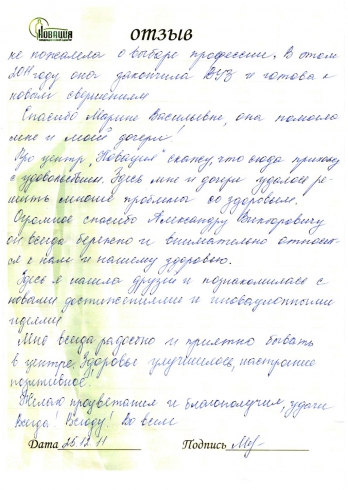 Новация
ОТЗЫВ
не пожалела о выборе профессии. В этом
2011 году она закончила ВУЗ и готова к
новым свершениям
Спасибо Марине Васильевне, она помогла
мне и моей дочери!
Про центр "Новация" скажу, что сюда прихожу
с удовольствием. Здесь мне и дочери удалось ре-
шить многие проблемы со здоровьем.
Огромное спасибо Александру Викторовичу
он всегда бережно и внимательно относит-
ся к нам и нашему здоровью.
Здесь я нашла друзей и познакомилась с
новыми достижениями и иновационными
идеями
Мне всегда радостно и приятно бывать
в центре. Здоровье улучшилось, настроение
позитивное!
Желаю процветания и благополучия, удачи
Всегда! Всюду! Во всем
Дата 25.12.11 Подпись